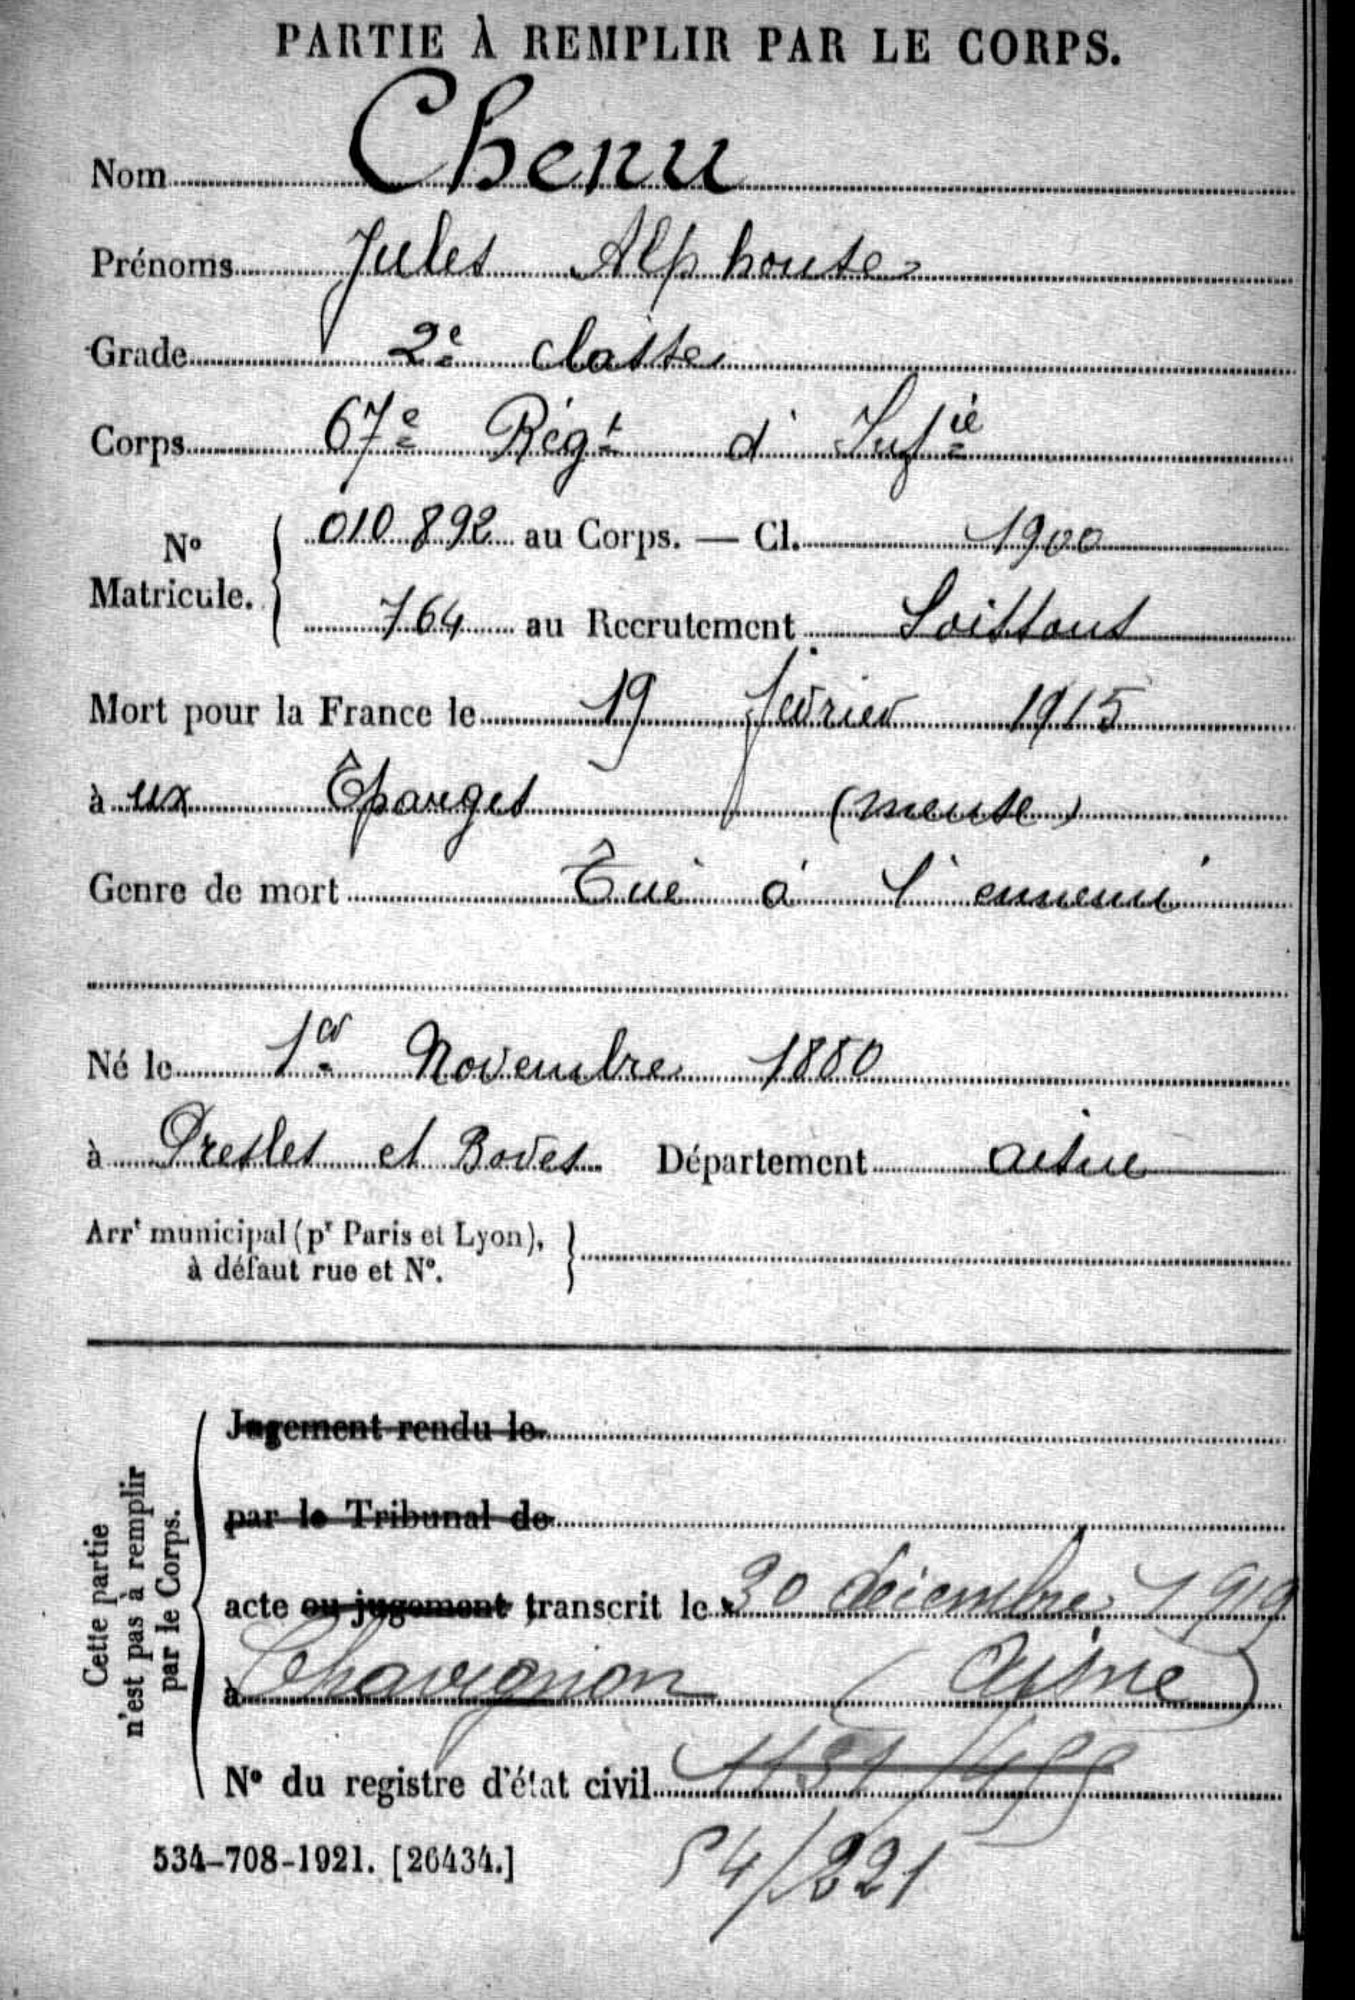 PARTIE À REMPLIR PAR LE CORPS.
Nom Chenu
Prénoms Jules Alphonse
Grade 2e classe
Corps 67e Régt d'Infie
No Matricule. 010 892 au Corps. — Cl. 1900
764 au Recrutement Soissons
Mort pour la France le 19 février 1915
à ux Éparges (meuse)
Genre de mort Tué à l'ennemi
Né le 1er Novembre 1880
à Presles et Boves Département aisne
Arrt municipal (pr Paris et Lyon),
à défaut rue et No.
Cette partie
n'est pas à remplir
par le Corps.
Jugement rendu le
par le Tribunal de
acte ou jugement transcrit le 30 décembre 1919
à Chavignon (Aisne)
No du registre d'état civil
54/221
534-708-1921. [26434.]